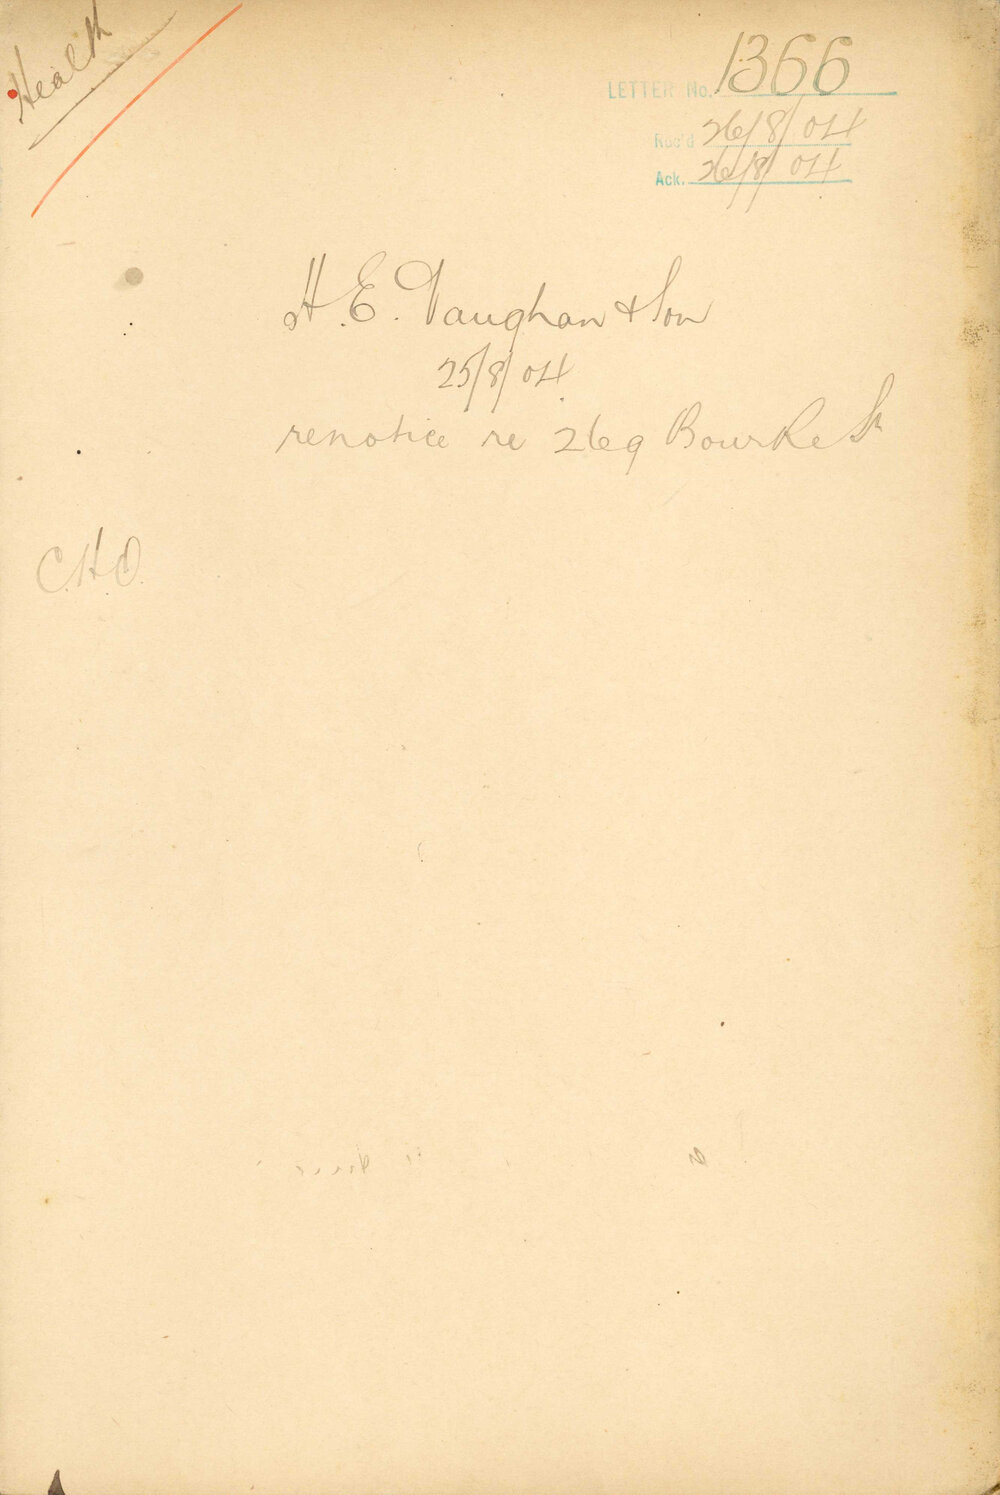 Health
LETTER No. 1366
Rec'd 26/8/04
Ack. 26/8/04
H. E. Vaughan & Son
25/8/04
renotice re 269 Bourke St
C.H.O.